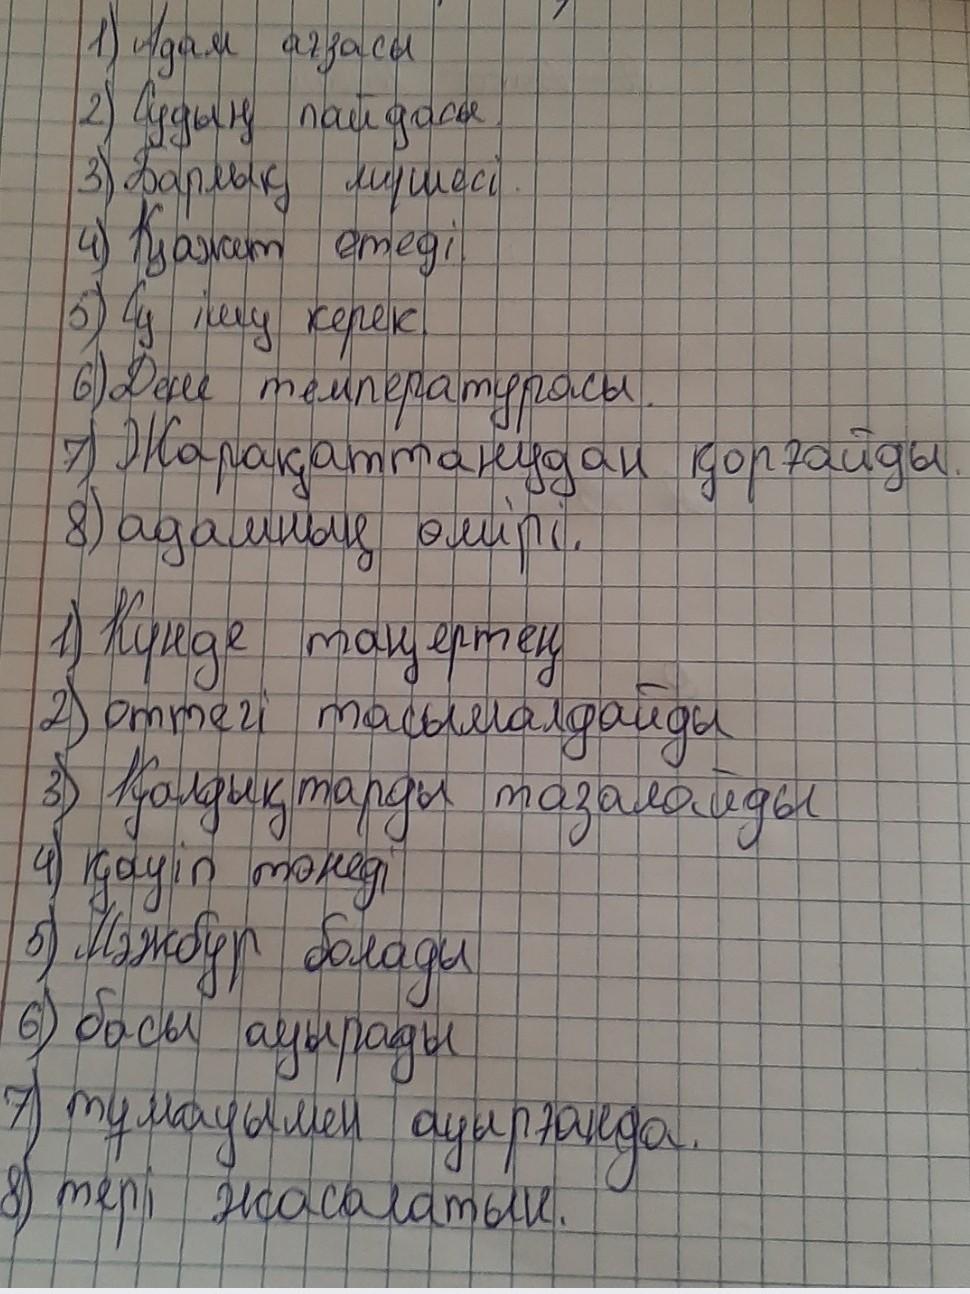 1) Адам ағзасы
2) Судың пайдасы.
3) Барлық мүшесі.
4) Қажет етеді
5) Су ішу керек
6) Дене температурасы.
7) Жарақаттанудан қорғайды.
8) адамның өмірі.
1) Күнде таңертең
2) оттегі тасымалдайды
3) Қалдықтарды тазалайды
4) қауіп төнеді
5) Мәжбүр болады
6) басы ауырады
7) тұмауымен ауырғанда.
8) тері жасалатын.